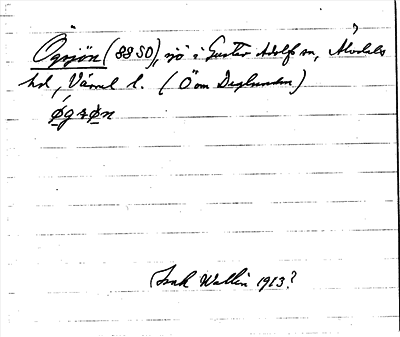 Ögsjön (88 SO), sjö i Gustav Adolfs sn, Älvdals
hd, Värml l. (Ö om Deglunden)
ø̱gsø̱n
Isak Wallin 1913?